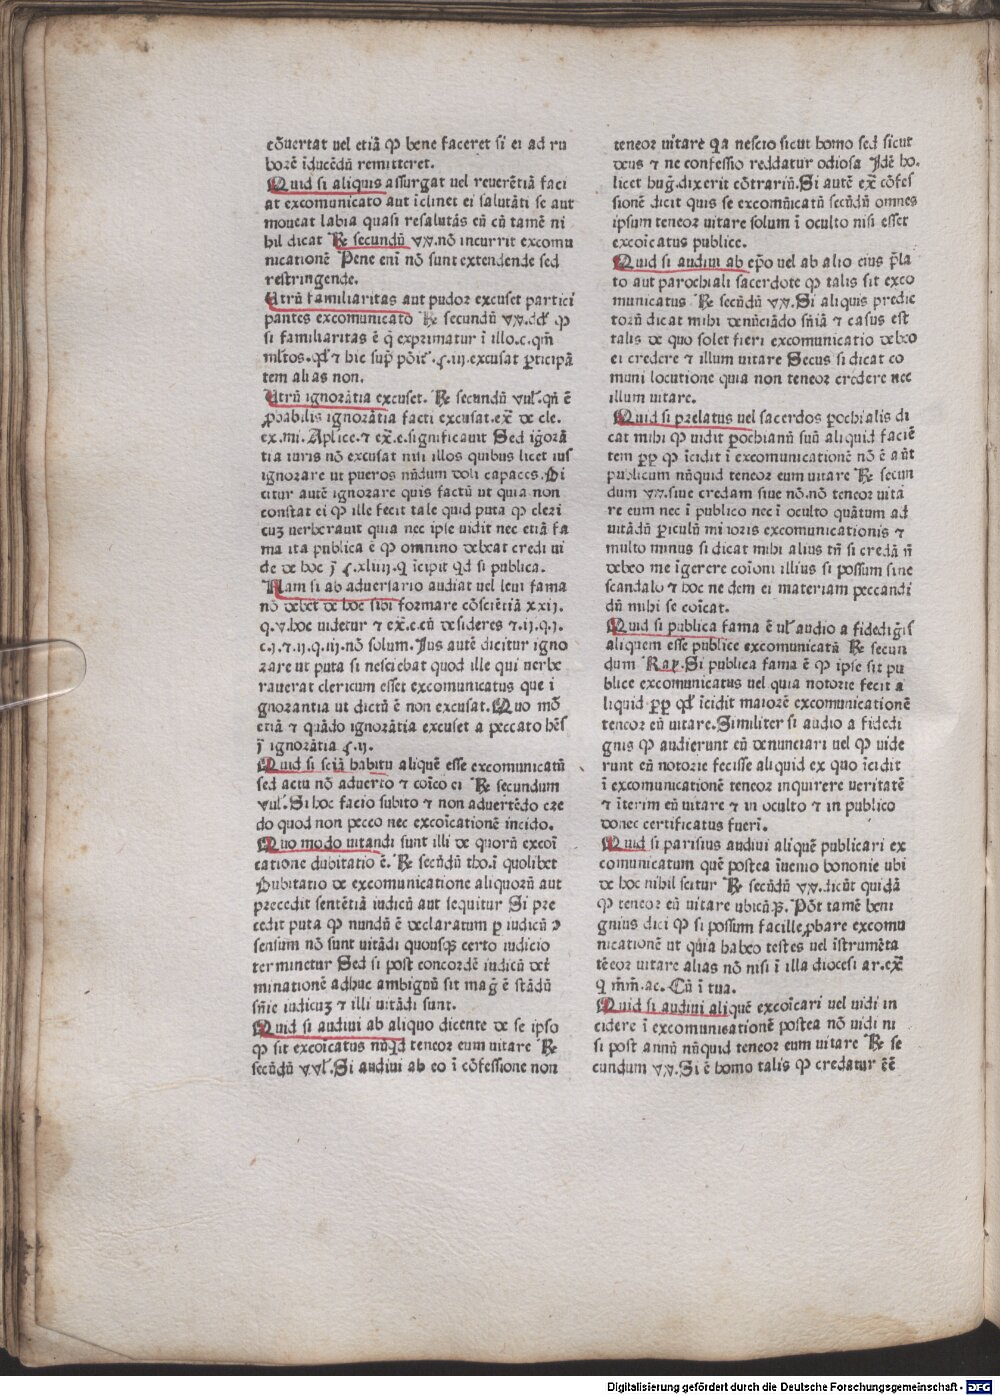 cōuertat uel etiā ꝙ bene faceret si ei ad ru
borē īducēdū remitteret.
Quid si aliquis assurgat uel reuerētiā faci
at excomunicato aut īclinet ei salutāti se aut
moueat labia quasi resalutās eū cū tamē ni
hil dicat ℞ secundū vv.nō incurrit excomu
nicationē Pene eni nō sunt extendende sed
restringende.
Utrū familiaritas aut pudor excuset partici
pantes excomunicato ℞ secundū vv. ꝙ
si familiaritas ē q̄ exprimatur ī illo.c.qm̄
ml̄tos. ⁊ hic sup̄ .ꝭ.iij.excusat ꝑticipā
tem alias non.
Utrū ignorātia excuset. ℞ secundū vul̄.qn̄ ē
ꝓbabilis ignorātia facti excusat.ex̄ de cle.
ex.mi.Aplice.⁊ ex̄.e.significauit Sed igōrā
tia iuris nō excusat nisi illos quibus licet ius
ignorare ut pueros nūdum doli capaces.Di
citur autē ignorare quis factū ut quia non
constat ei ꝙ ille fecit tale quid puta ꝙ cleri
cuꝫ uerberauit quia nec ipse uidit nec etiā fa
ma ita publica ē ꝙ omnino debeat credi ui
de de hoc ꝭ.xliij.q īcipit qd si publica.
Nam si ab aduersario audiat uel leui fama
nō debet de hoc sibi formare cōsciētiā xxij.
q.v.hoc uidetur ⁊ ex̄.e.cū desideres ⁊.ij.q.j.
c.j.⁊.ij.q.iij.nō solum.Ius autē dicitur igno
rare ut puta si nesciebat quod ille qui uerbe
rauerat clericum esset excomunicatus que i
gnorantia ut dictū ē non excusat.Quo mō
etiā ⁊ quādo ignorātia excuset a peccato hēs
ignorātia ꝭ.ij.
Quid si sciā habitu aliquē esse excomunicatū
sed actu nō aduerto ⁊ coīco ei ℞ secundum
vul̄.Si hoc facio subito ⁊ non aduertēdo cre
do quod non pecco nec excoīcationē incido.
Quo modo uitandi sunt illi de quorū excoī
catione dubitatio ē. ℞ secūdū tho.ī quolibet
Dubitatio de excomunicatione aliquorū aut
precedit sentētiā iudicū aut sequitur Si pre
cedit puta ꝙ nundū ē declaratum ꝑ iudicū ꝯ
sensum nō sunt uitādi quousqꝫ certo iudicio
terminetur Sed si post concordē iudicū det
minationē adhuc ambignū sit mag̃ ē stādū
snīe iudicuꝫ ⁊ illi uitādi sunt.
Quid si audiui ab aliquo dicente de se ipso
ꝙ sit excoīcatus nūqd teneor eum uitare ℞
secūdū v.vl̄.Si audiui ab eo ī cōfessione non
teneor uitare qa nescio sicut homo sed sicut
deus ⁊ ne confessio reddatur odiosa Idē ho.
licet hug̃.dixerit cōtrariū.Si autē ex̄ cōfes
sionē dicit quis se excomūicatū secūdū omnes
ipsum teneor uitare solum ī oculto nisi esset
excoīcatus publice.
Quid si audiui ab ep̄o uel ab alio eius p̄la
to aut parochiali sacerdote ꝙ talis sit exco
municatus ℞ secūdū vv.Si aliquis predic
torū dicat mihi denūciādo sn̄iā ⁊ casus est
talis de quo solet fieri excomunicatio debeo
ei credere ⁊ illum uitare Secus si dicat co
muni locutione quia non teneor credere nec
illum uitare.
Quid si prelatus uel sacerdos ꝑochialis di
cat mihi ꝙ uidit ꝑochianū suū aliquid faciē
tem ꝓꝑ ꝙ īcidit ī excomunicationē nō ē aūt
publicum nūquid teneor eum uitare ℞ secun
dum vv.siue credam siue nō.nō teneor uita
re eum nec ī publico nec ī oculto quātum ad
uitādū ꝑiculū mīoris excomunicationis ⁊
multo minus si dicat mihi alius tn̄ si credā n̄
debeo me īgerere coīoni illius si possum sine
scandalo ⁊ hoc ne dem ei materiam peccandi
dū mihi se coīcat.
Quid si publica fama ē ul̄ audio a fidedig̃is
aliquem esse publice excomunicatū ℞ secun
dum Ray.Si publica fama ē ꝙ ipse sit pu
blice excomunicatus uel quia notorie fecit a
liquid ꝓꝑ īcidit maiorē excomunicationē
teneor eū uitare.Similiter si audio a fidedi
gnis ꝙ audierunt eū denunciari uel ꝙ uide
runt eū notorie fecisse aliquid ex quo īcidit
ī excomunicationē teneor inquirere ueritatē
⁊ īterim eū uitare ⁊ in oculto ⁊ in publico
donec certificatus fueri.
Quid si parisius audiui aliquē publicari ex
comunicatum quē postea īuenio bononie ubi
de hoc nihil scitur ℞ secūdū vv.dicūt quidā
ꝙ teneor eū uitare ubicūqꝫ.Pōt tamē beni
gnius dici ꝙ si possum facille ꝓbare excomu
nicationē ut quia habeo testes uel īstrumēta
tēeor uitare alias nō nisi ī illa diocesi ar.ex̄
q mm̄.ac.Cū ī tua.
Quid si audiui aliquē excoīcari uel uidi in
cidere ī excomunicationē postea nō uidi ni
si post annū nūquid teneor eum uitare ℞ se
cundum vv.Si ē homo talis ꝙ credatur ēē
Digitalisierung gefördert durch die Deutsche Forschungsgemeinschaft - DFG